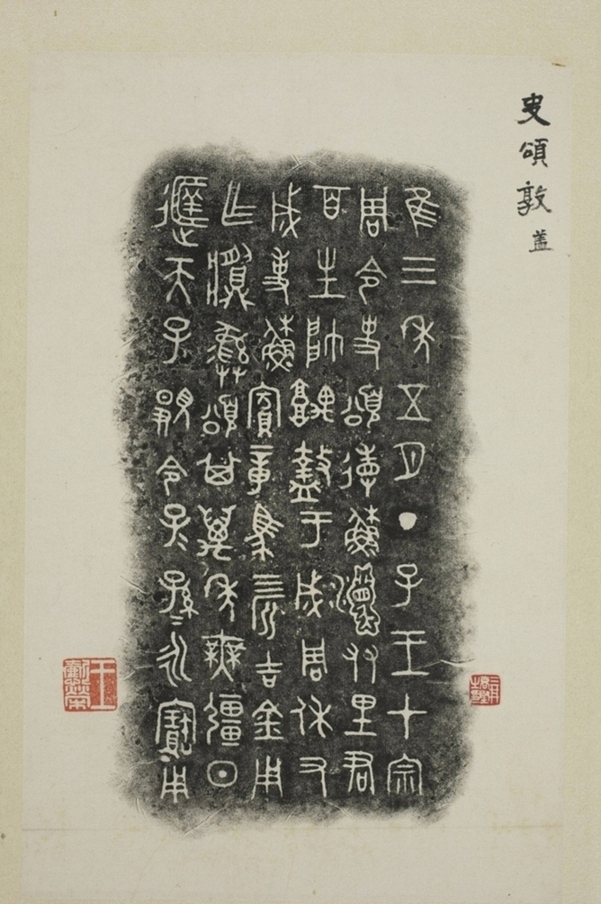 史頌敦蓋
隹三年五月丁子王才宗
周令史頌省蘇友里君
百生帥盩于成周休又
成事蘇賓章馬四匹吉金用
乍彝頌其萬年無疆日
天子覭令子〻孫〻永寶用
王懿榮